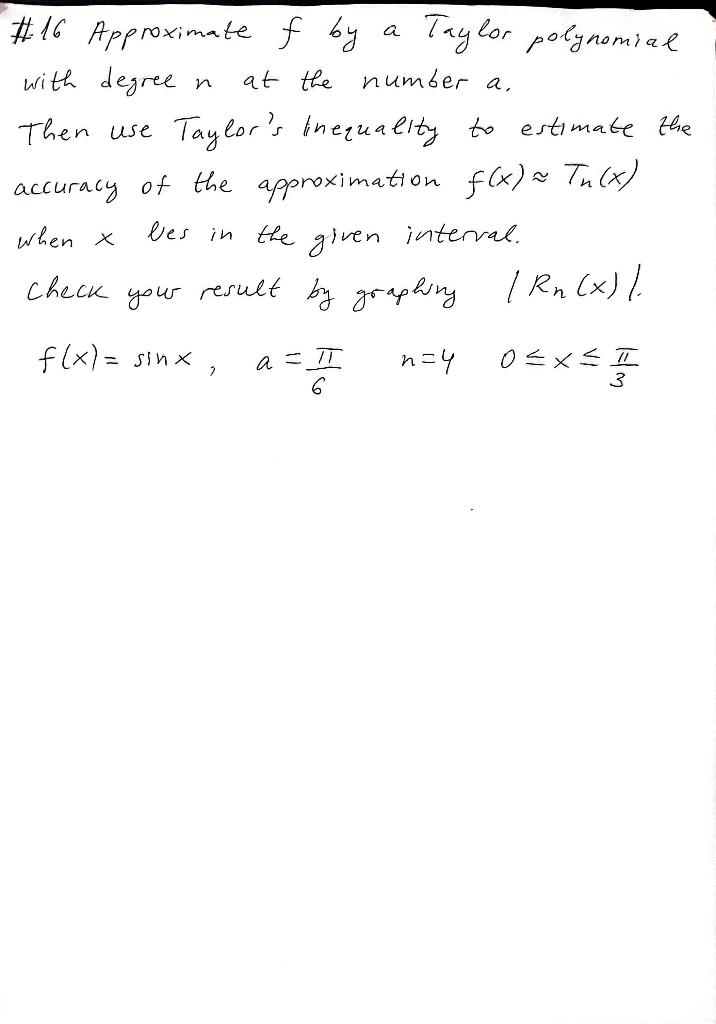 #16 Approximate f by a Taylor polynomial
with degree n at the number a.
Then use Taylor's Inequality to estimate the
accuracy of the approximation f(x) ≈ Tn(x)
when x lies in the given interval.
Check your result by graphing |Rn(x)|.
f(x) = sinx, a = π/6 n=4 0≤x≤π/3